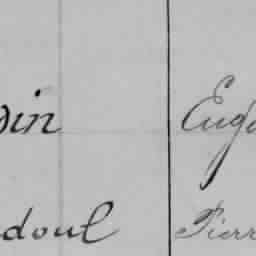 din Euge
doul Pierr